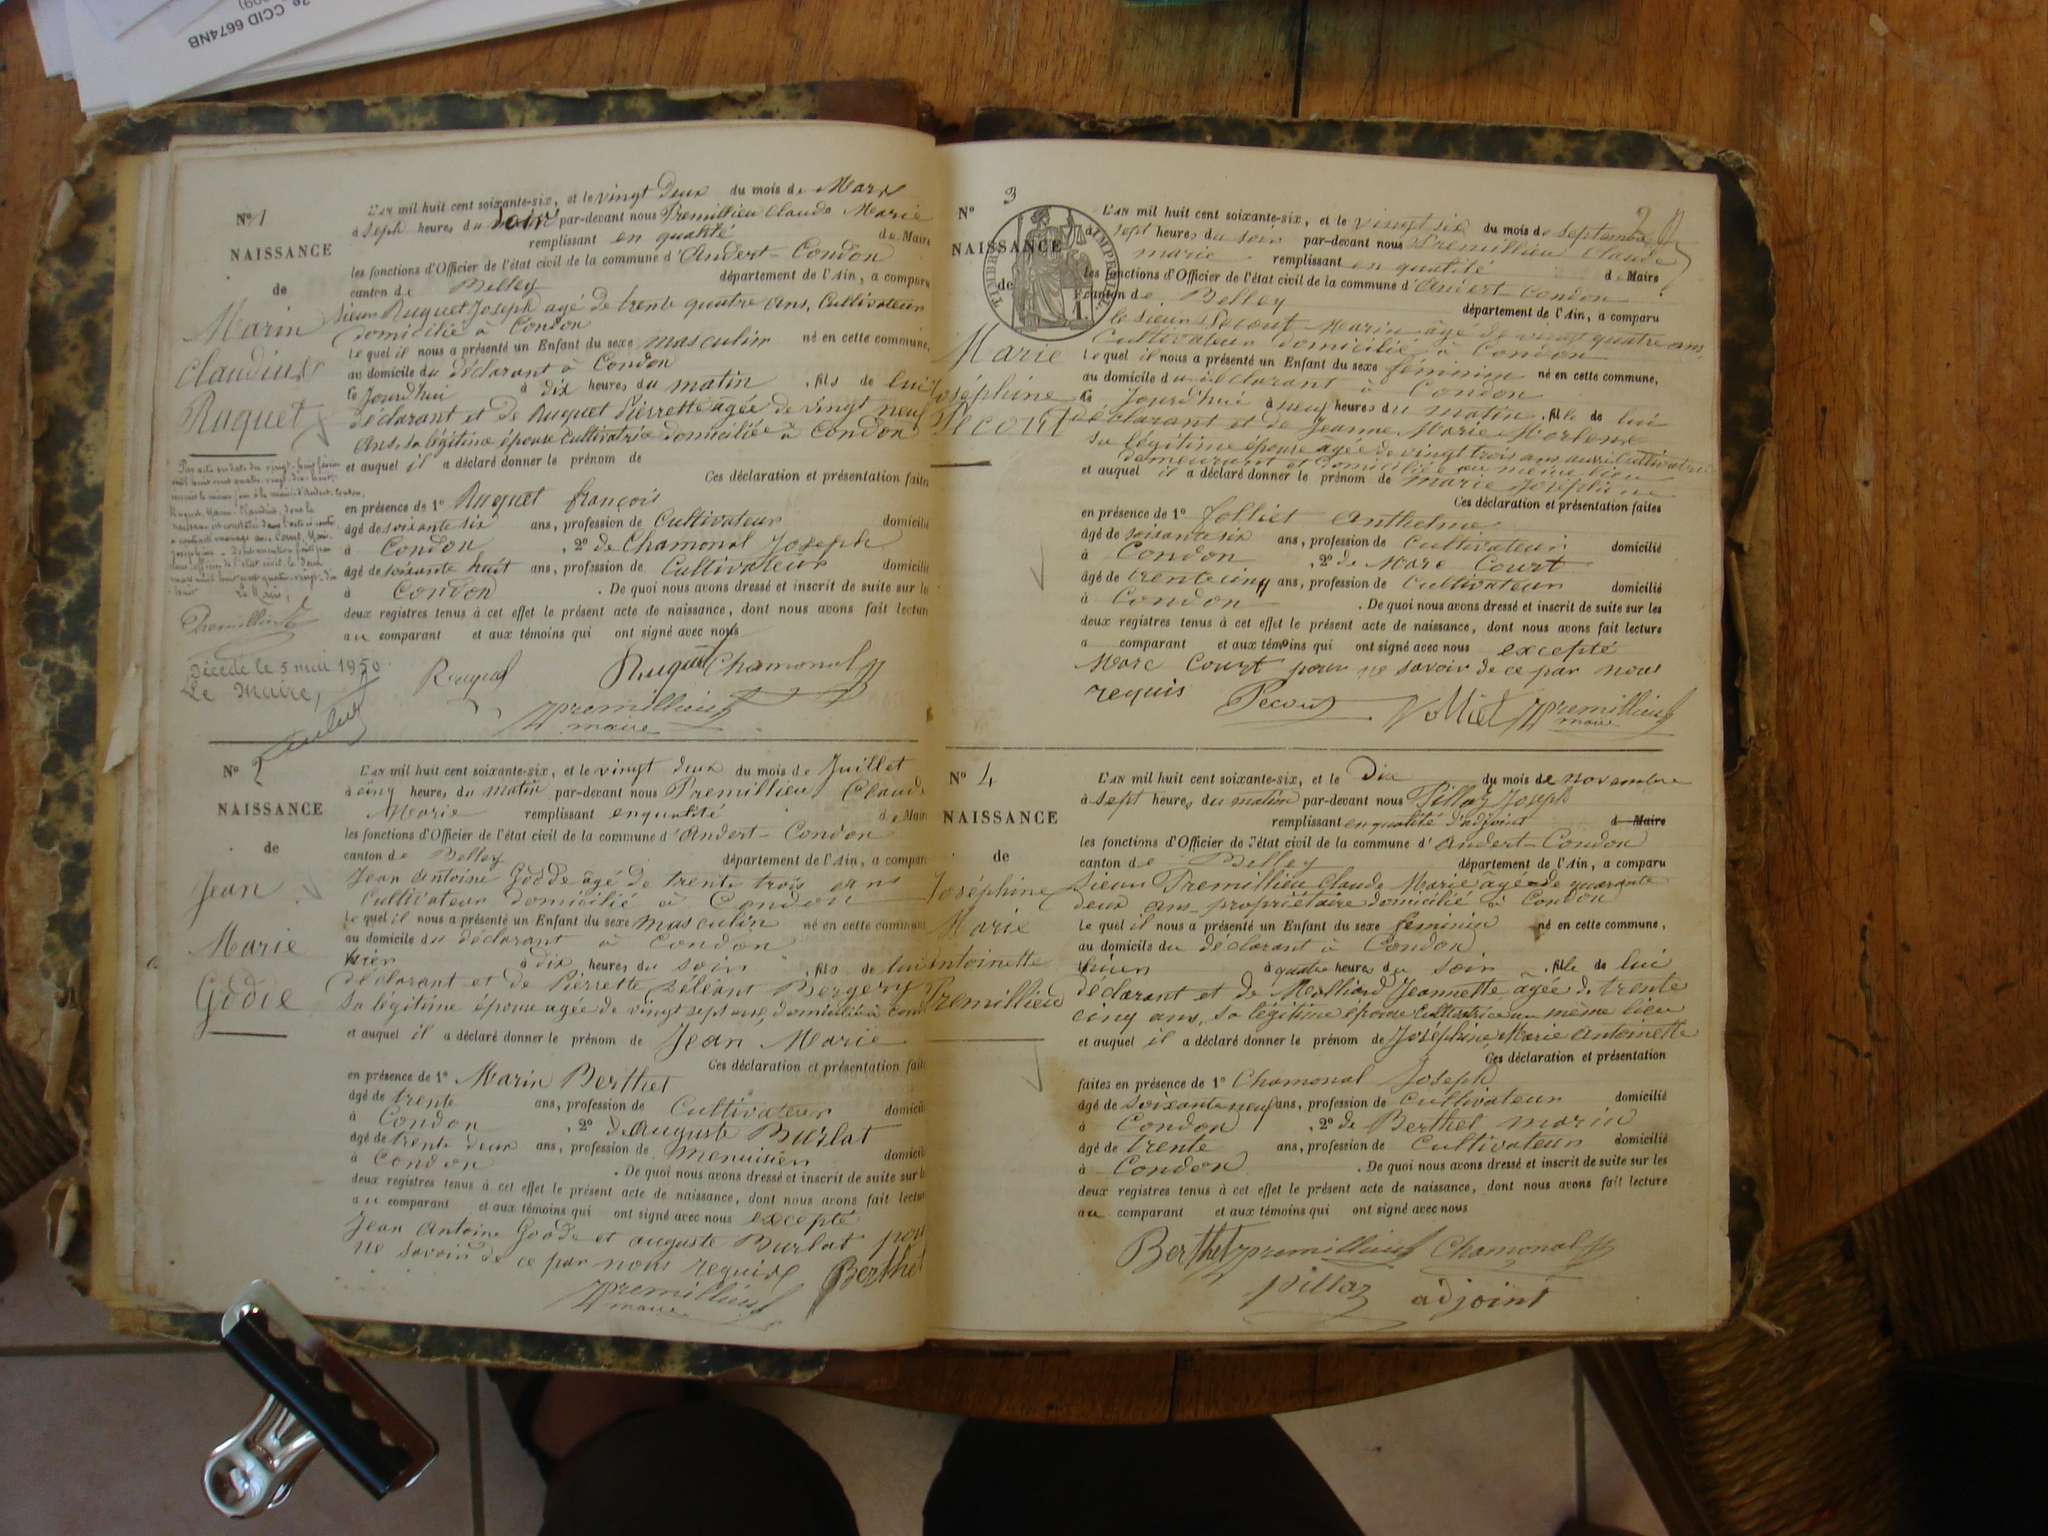 2e. CCID 6674NB
N° 1
NAISSANCE
de
Marin
Claudius
Ruquet
L'AN mil huit cent soixante-six, et le vingt deux du mois de Mars
à Sept heures du soir par-devant nous Premillieu Claude Marie
remplissant en qualité de Maire
les fonctions d'Officier de l'état civil de la commune d'Andert-Condon
canton de Belley département de l'Ain, a comparu
Sieur Ruquet Joseph agé de trente quatre ans, Cultivateur
domicilié à Condon
Lequel il nous a présenté un Enfant du sexe masculin né en cette commune,
au domicile du déclarant à Condon
le Jourd'hui à dix heures du matin, fils de lui
déclarant et de Ruquet Pierrette agée de vingt neuf
ans, sa légitime épouse Cultivatrice domiciliée à Condon
et auquel il a déclaré donner le prénom de
Ces déclaration et présentation faites
en présence de 1° Ruquet françois
âgé de soixante six ans, profession de Cultivateur domicilié
à Condon, 2° de Chamonal Joseph
âgé de soixante huit ans, profession de Cultivateur domicilié
à Condon. De quoi nous avons dressé et inscrit de suite sur les
deux registres tenus à cet effet le présent acte de naissance, dont nous avons fait lecture
au comparant et aux témoins qui ont signé avec nous
Premillieu
Décédé le 5 mai 1950.
Le Maire,
Ruquet Ruquet Chamonal
Premillieu
maire
N° 2
NAISSANCE
de
Jean
Marie
Godde
L'AN mil huit cent soixante-six, et le vingt deux du mois de Juillet
à cinq heures du matin par-devant nous Premillieu Claude
Marie remplissant en qualité de Maire
les fonctions d'Officier de l'état civil de la commune d'Andert-Condon
canton de Belley département de l'Ain, a comparu
Jean Antoine Godde âgé de trente trois ans
Cultivateur domicilié à Condon
Lequel il nous a présenté un Enfant du sexe masculin né en cette commune
au domicile du déclarant à Condon
hier à dix heures du soir, fils de lui
déclarant et de Pierrette Bergery
sa légitime épouse agée de vingt sept ans, domiciliée à Condon
et auquel il a déclaré donner le prénom de Jean Marie
Ces déclaration et présentation faites
en présence de 1° Marin Berthet
âgé de trente ans, profession de Cultivateur domicilié
à Condon, 2° de Auguste Burlat
âgé de trente deux ans, profession de Menuisier domicilié
à Condon. De quoi nous avons dressé et inscrit de suite sur les
deux registres tenus à cet effet le présent acte de naissance, dont nous avons fait lecture
au comparant et aux témoins qui ont signé avec nous excepté
Jean Antoine Godde et auguste Burlat pour
ne savoir de ce par nous requis Berthet
Premillieu
maire
2
N° 3
NAISSANCE
de
TIMBRE IMPERIAL
Marie
Joséphine
Pecourt
L'AN mil huit cent soixante-six, et le vingt six du mois de Septembre
à sept heures du soir par-devant nous Premillieu Claude
marie remplissant en qualité de Maire
les fonctions d'Officier de l'état civil de la commune d'Andert-Condon
canton de Belley département de l'Ain, a comparu
le sieur Pecout Marin âgé de vingt quatre ans,
Cultivateur domicilié à Condon
Lequel il nous a présenté un Enfant du sexe féminin né en cette commune,
au domicile du déclarant à Condon
Le Jourd'hui à neuf heures du matin, fille de lui
déclarant et de Jeanne Marie
sa légitime épouse agée de vingt trois ans aussi Cultivatrice
demeurant et domiciliée au même lieu
et auquel il a déclaré donner le prénom de Marie Joséphine
Ces déclaration et présentation faites
en présence de 1° Jolliet Anthelme
âgé de soixante six ans, profession de Cultivateur domicilié
à Condon, 2° de Marc Court
âgé de trente cinq ans, profession de Cultivateur domicilié
à Condon. De quoi nous avons dressé et inscrit de suite sur les
deux registres tenus à cet effet le présent acte de naissance, dont nous avons fait lecture
a comparant et aux témoins qui ont signé avec nous excepté
Marc Court pour ne savoir de ce par nous
requis Pecout Premillieu
maire
N° 4
NAISSANCE
de
Joséphine
Marie
Antoinette
Premillieu
L'AN mil huit cent soixante-six, et le Dix du mois de novembre
à sept heures du matin par-devant nous Pillaz Joseph
remplissant en qualité d'adjoint d Maire
les fonctions d'Officier de l'état civil de la commune d'Andert-Condon
canton de Belley département de l'Ain, a comparu
Sieur Premillieu Claude Marie âgé de quarante
deux ans propriétaire domicilié à Condon
Lequel il nous a présenté un Enfant du sexe feminin né en cette commune,
au domicile du déclarant à Condon
hier à quatre heures du soir, fille de lui
déclarant et de Molliard Jeannette âgée de trente
cinq ans, sa légitime épouse Cultivatrice au même lieu
et auquel il a déclaré donner le prénom de Joséphine Marie Antoinette
Ces déclaration et présentation
faites en présence de 1° Chamonal Joseph
âgé de soixante neuf ans, profession de Cultivateur domicilié
à Condon, 2° de Berthet marin
âgé de trente ans, profession de Cultivateur domicilié
à Condon. De quoi nous avons dressé et inscrit de suite sur les
deux registres tenus à cet effet le présent acte de naissance, dont nous avons fait lecture
au comparant et aux témoins qui ont signé avec nous
Berthet Premillieu Chamonal
Pillaz adjoint